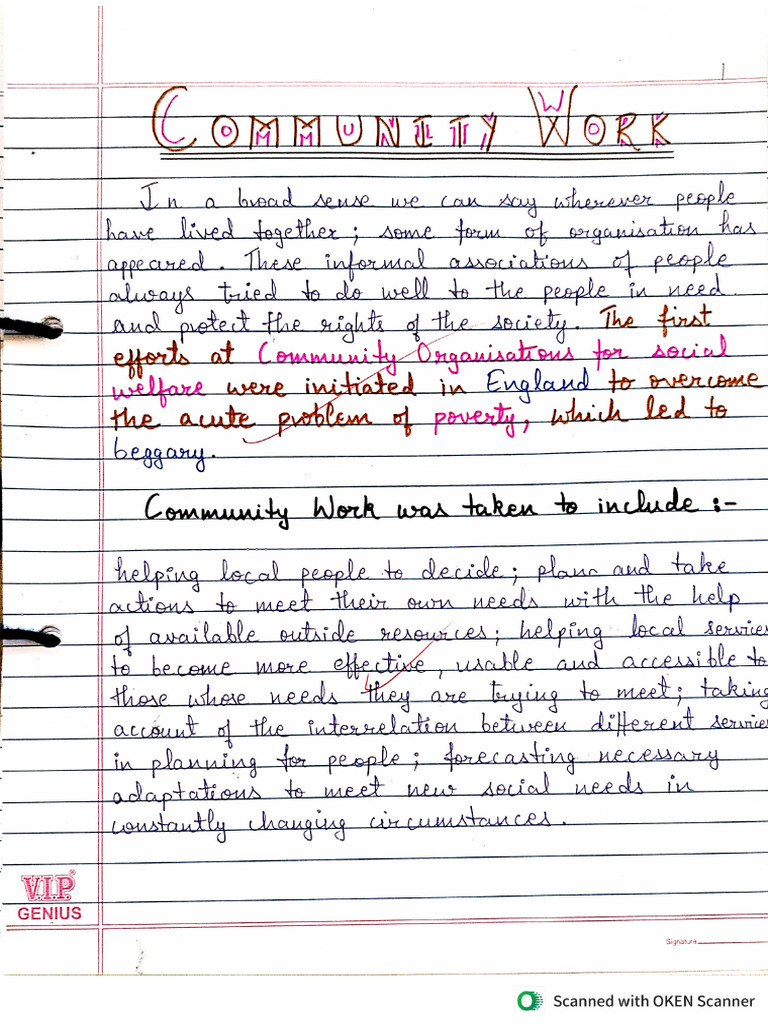 1
COMMUNITY WORK
In a broad sense we can say wherever people
have lived together; some form of organisation has
appeared. These informal associations of people
always tried to do well to the people in need
and protect the rights of the society. The first
efforts at Community Organisations for social
welfare were initiated in England to overcome
the acute problem of poverty, which led to
beggary.
Community Work was taken to include :-
helping local people to decide; plan and take
actions to meet their own needs with the help
of available outside resources; helping local services
to become more effective, usable and accessible to
those whose needs they are trying to meet; taking
account of the interrelation between different services
in planning for people; forecasting necessary
adaptations to meet new social needs in
constantly changing circumstances.
V.I.P.®
GENIUS
Signature
Scanned with OKEN Scanner